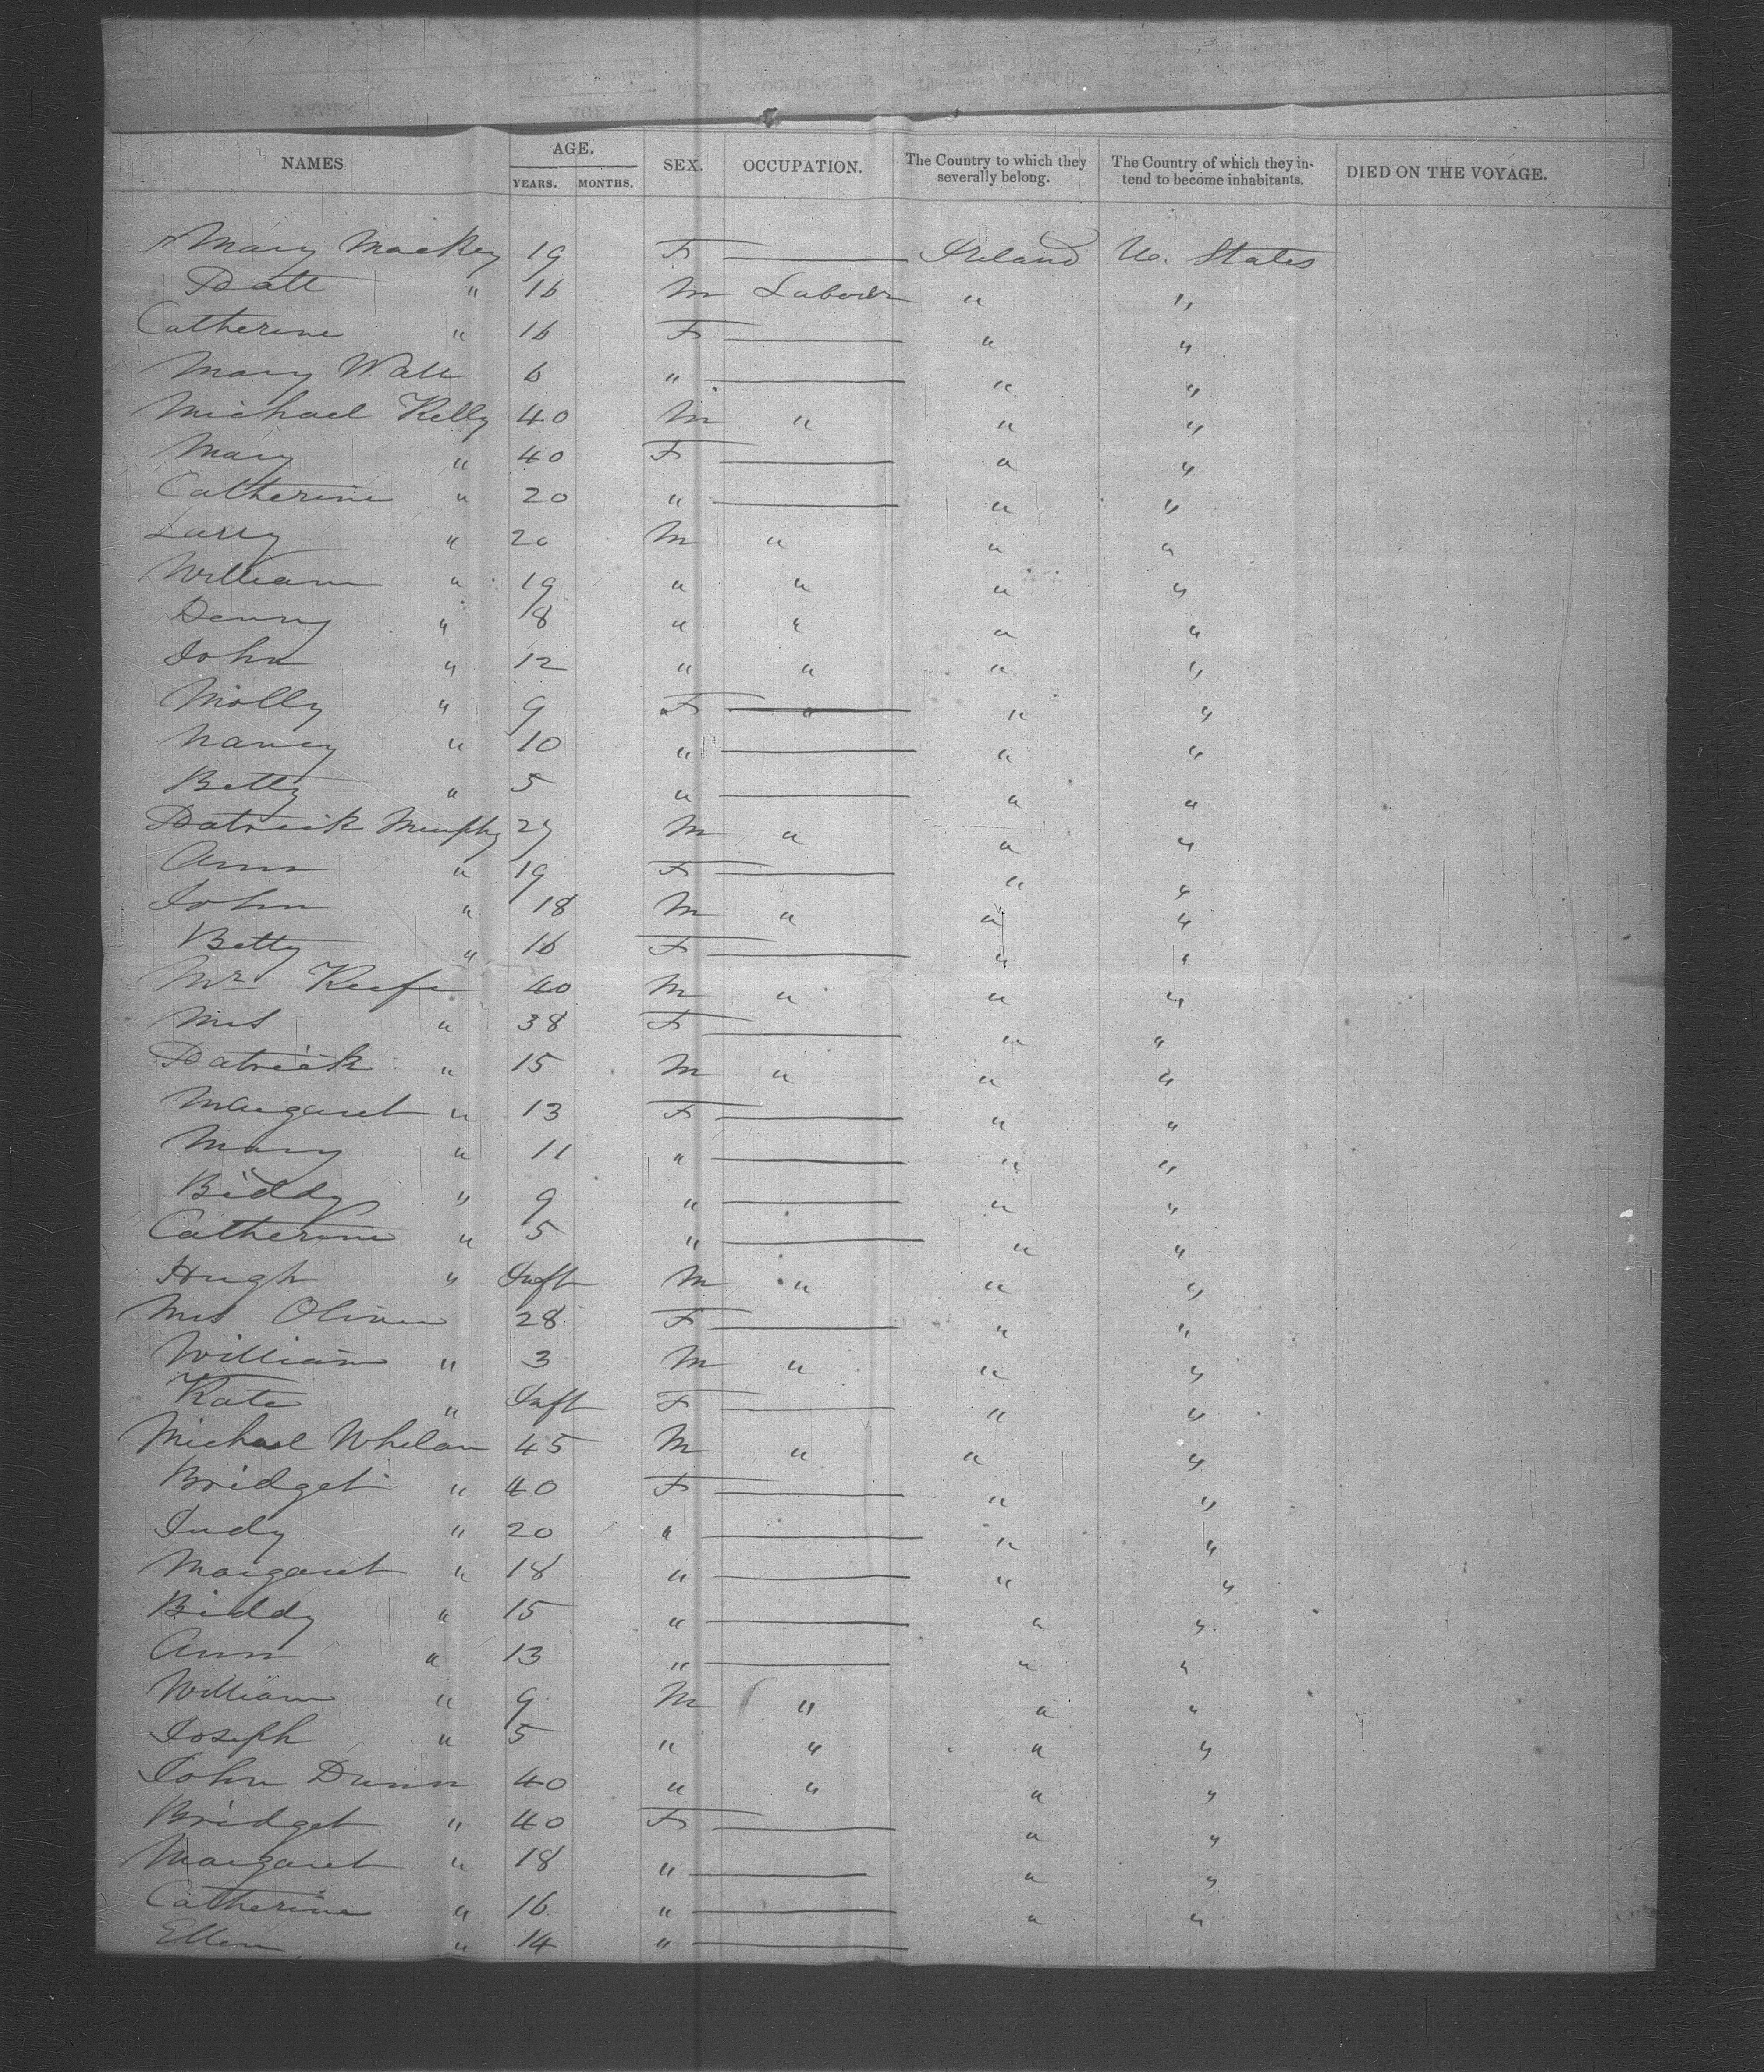 NAMES AGE. YEARS. MONTHS. SEX. OCCUPATION. The Country to which they severally belong. The Country of which they intend to become inhabitants. DIED ON THE VOYAGE.
Mary Mackey 19 F —— Ireland U. States
Patt " 16 M Labour " "
Catherine " 16 F —— " "
Mary Wall 6 " —— " "
Michael Kelly 40 M " " "
Mary " 40 F —— " "
Catherine " 20 " —— " "
Larry " 20 M " " "
William " 19 " " " "
Denny " 18 " " " "
John " 12 " " " "
Molly " 9 F —— " "
Nancy " 10 " —— " "
Betty " 5 " —— " "
Patrick Murphy 27 M " " "
Ann " 19 F —— " "
John " 18 M " " "
Betty " 16 F —— " "
Mr Keefe 40 M " " "
Mrs " 38 F —— " "
Patrick " 15 M " " "
Margaret " 13 F —— " "
Mary " 11 " —— " "
Biddy " 9 " —— " "
Catherine " 5 " —— " "
Hugh " Inft M " " "
Mrs Oliver 28 F —— " "
William " 3 M " " "
Kate " Inft F —— " "
Michael Whelan 45 M " " "
Bridget " 40 F —— " "
Judy " 20 " —— " "
Margaret " 18 " —— " "
Biddy " 15 " —— " "
Ann " 13 " —— " "
William " 9 M " " "
Joseph " 5 " " " "
John Dunn 40 " " " "
Bridget " 40 F —— " "
Margaret " 18 " —— " "
Catherine " 16 " —— " "
Ellen " 14 " ——